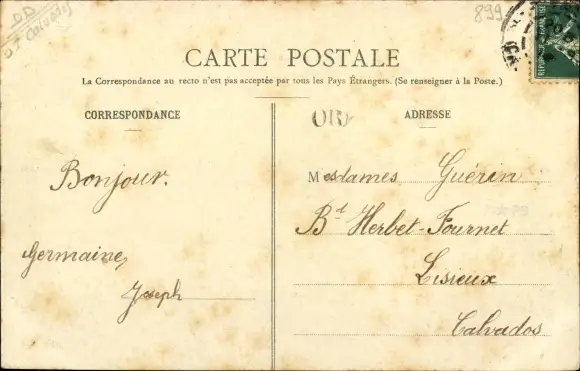 DD
Calvados
899
CARTE POSTALE
La Correspondance au recto n'est pas acceptée par tous les Pays Étrangers. (Se renseigner à la Poste.)
CORRESPONDANCE
OR
ADRESSE
Bonjour.
Germaine,
Joseph
Mesdames Guérin
Bd Herbet-Fournet
Lisieux
Calvados